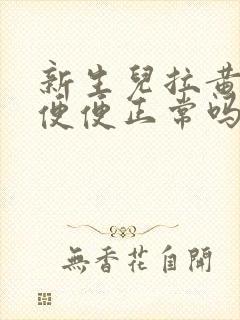 新生兒拉黃
便便正常吗
無香花自開